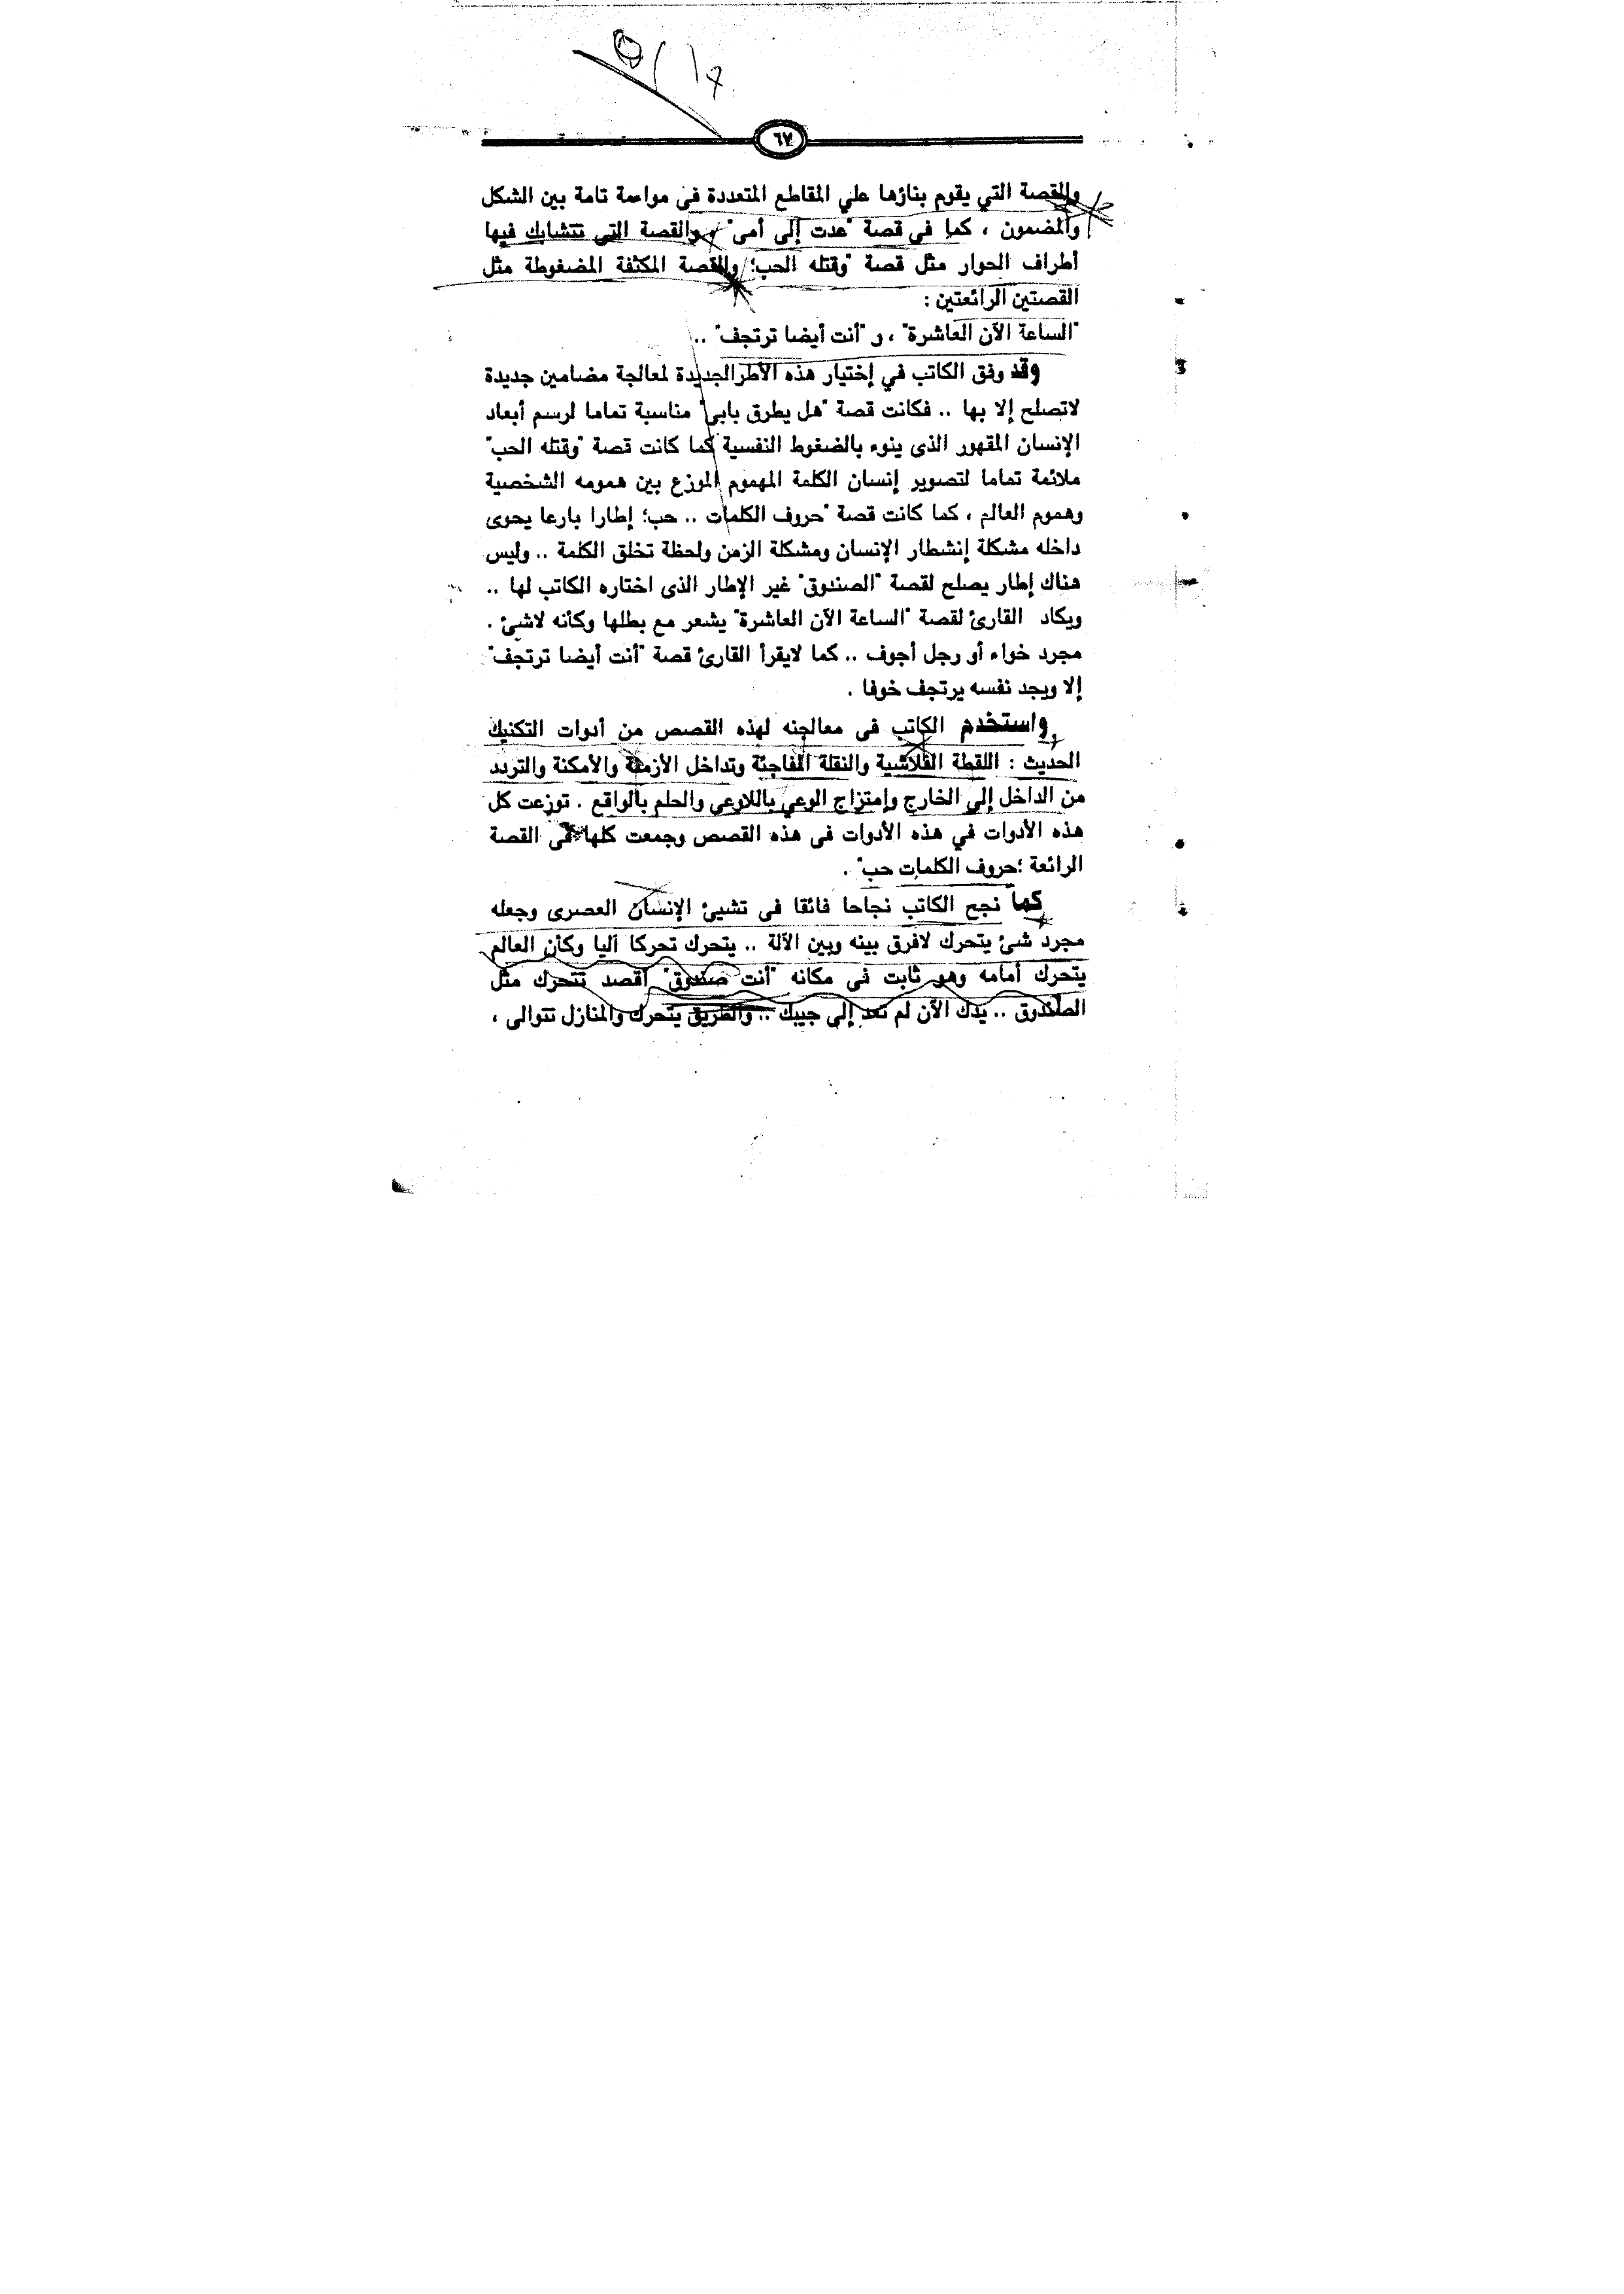 ٦٧
والقصة التي يقوم بناؤها علي المقاطع المتعددة في مواءمة تامة بين الشكل
والمضمون ، كما في قصة "عدت إلى أمى" ، والقصة التى تتشابك فيها
أطراف الحوار مثل قصة "وقتله الحب؛ والقصة المكثفة المضغوطة مثل
القصتين الرائعتين :
"الساعة الآن العاشرة" ، و "أنت أيضا ترتجف" ..
وقد وفق الكاتب في إختيار هذه الأطر الجديدة لمعالجة مضامين جديدة
لاتصلح إلا بها .. فكانت قصة "هل يطرق بابى" مناسبة تماما لرسم أبعاد
الإنسان المقهور الذى ينوء بالضغوط النفسية كما كانت قصة "وقتله الحب"
ملائمة تماما لتصوير إنسان الكلمة المهموم الموزع بين همومه الشخصية
وهموم العالم ، كما كانت قصة "حروف الكلمات .. حب؛ إطارا بارعا يحوى
داخله مشكلة إنشطار الإنسان ومشكلة الزمن ولحظة تخلق الكلمة .. وليس
هناك إطار يصلح لقصة "الصندوق" غير الإطار الذى اختاره الكاتب لها ..
ويكاد القارئ لقصة "الساعة الآن العاشرة" يشعر مع بطلها وكأنه لاشئ .
مجرد خواء أو رجل أجوف .. كما لايقرأ القارئ قصة "أنت أيضا ترتجف"
إلا ويجد نفسه يرتجف خوفا .
واستخدم الكاتب فى معالجته لهذه القصص من أدوات التكنيك
الحديث : اللقطة الفلاشية والنقلة المفاجئة وتداخل الأزمنة والأمكنة والتردد
من الداخل إلي الخارج وإمتزاج الوعي باللاوعي والحلم بالواقع . توزعت كل
هذه الأدوات في هذه الأدوات فى هذه القصص وجمعت كلها فى القصة
الرائعة ؛حروف الكلمات حب" .
كما نجح الكاتب نجاحا فائقا فى تشيئ الإنسان العصرى وجعله
مجرد شئ يتحرك لافرق بينه وبين الآلة .. يتحرك تحركا آليا وكأن العالم
يتحرك أمامه وهو ثابت فى مكانه "أنت صندوق" أقصد تتحرك مثل
الصندوق .. يدك الآن لم تعد إلي جيبك .. والطريق يتحرك والمنازل تتوالى ،